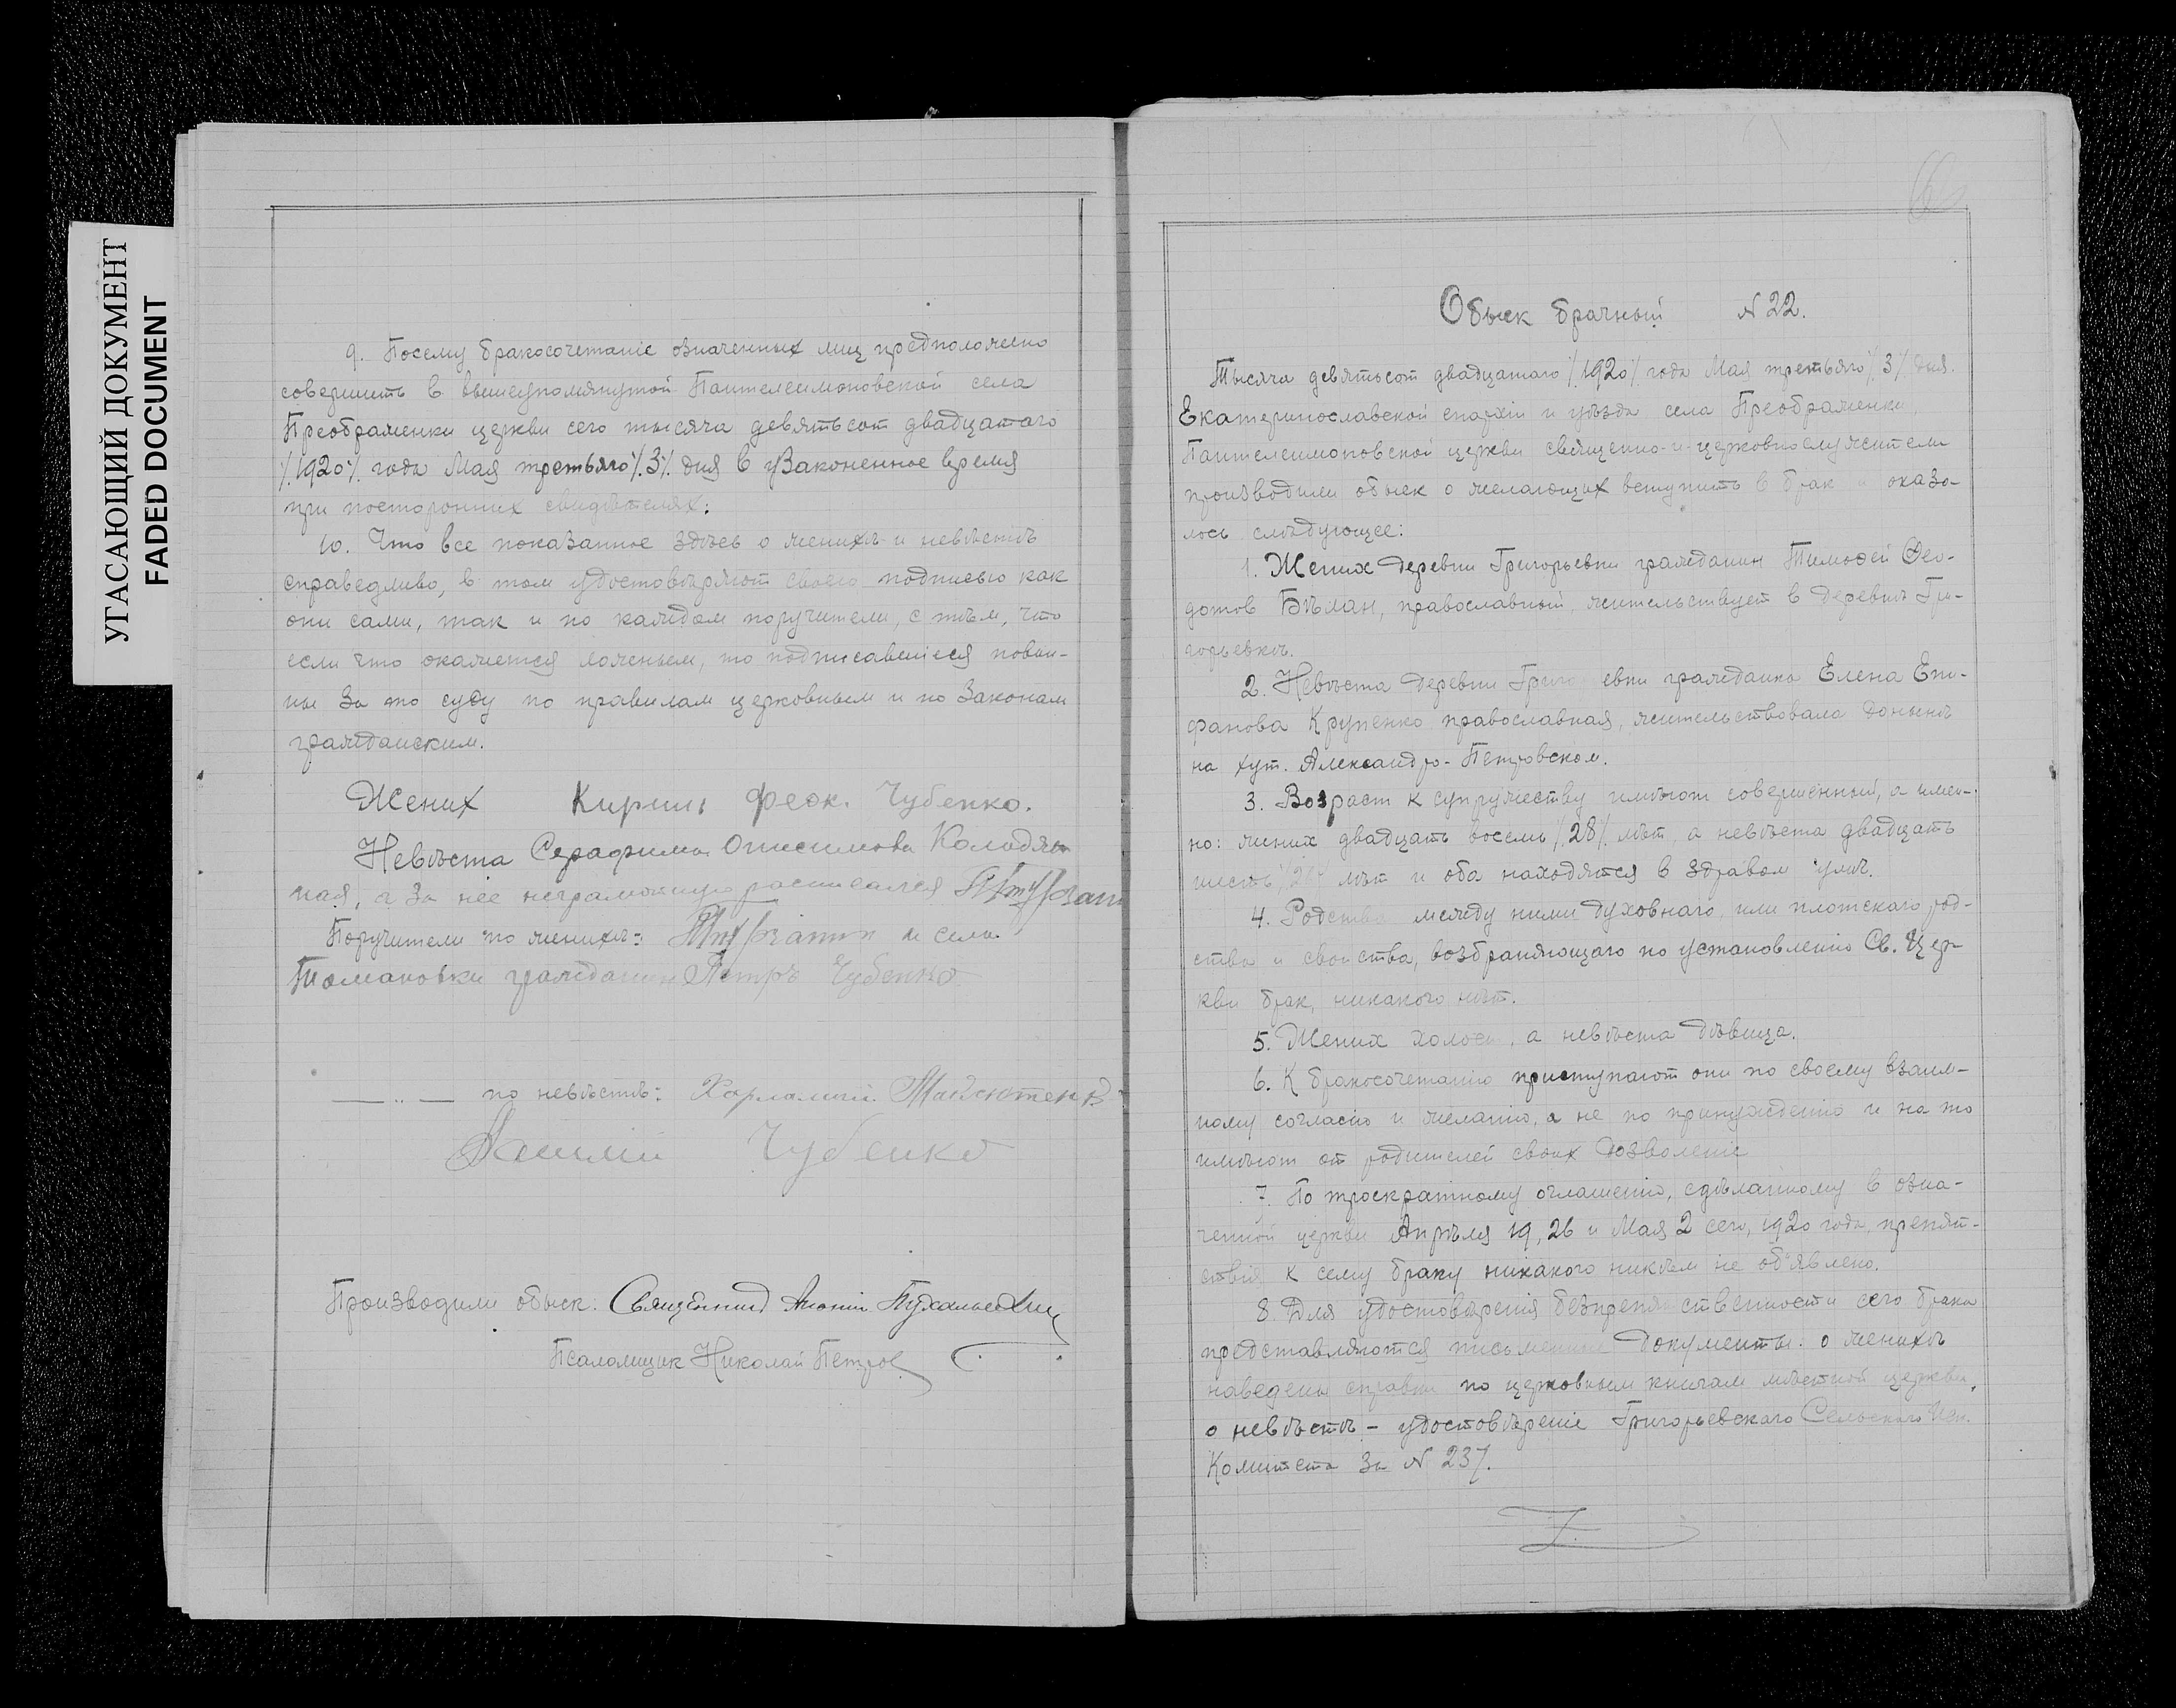 УГАСАЮЩИЙ ДОКУМЕНТ
FADED DOCUMENT
9. Посему бракосочетаніе означенных лиц предположено
совершить в вышеупомянутой Пантелеимоновской села
Преображенки церкви сего тысяча девятьсот двадцатаго
/1920/ года Мая третьяго /3/ дня в узаконенное время
при посторонних свидѣтелях:
10. Что все показанное здѣсь о женихѣ и невѣстѣ
справедливо, в том удостовѣряют своею подписью как
они сами, так и по каждом поручители, с тѣм, что
если что окажется ложным, то подписавшіеся повин-
ны за то суду по правилам церковным и по законам
гражданским.
Жених Кирилъ Феок. Чубенко.
Невѣста Серафима Онисимова Колодяж
ная, а за нее неграмотную расписался
Поручители по женихѣ: и села
Томаковки гражданин Петръ Чубенко
— „ — по невѣстѣ: Харлампій
Чубенко
Производили обыск: Священник
Псаломщик Николай Петров
Обыск брачный N 22.
Тысяча девятьсот двадцатаго /1920/ года Мая третьяго /3/ дня.
Екатеринославской епархіи и уѣзда села Преображенки
Пантелеимоновской церкви священно-и-церковнослужители
производили обыск о желающих вступить в брак и оказа-
лось слѣдующее:
1. Жених деревни Григорьевки гражданин Тимофей Ѳео-
дотов Бѣлан, православный, жительствует в деревнѣ Гри-
горьевкѣ.
2. Невѣста деревни Григо евки гражданка Елена Епи-
фанова Крупенко православная, жительствовала донынѣ
на хут. Александро-Петровском.
3. Возраст к супружеству имѣют совершенный, а имен-
но: жених двадцать восемь /28/ лѣт, а невѣста двадцать
шесть /26/ лѣт и оба находятся в здравом умѣ.
4. Родства между ними духовного или плотскаго род-
ства и свойства, возбраняющаго по установленію Св. Цер-
кви брак, никакого нѣт.
5. Жених холост, а невѣста дѣвица.
6. К бракосочетанію приступают они по своему взаим-
ному согласію и желанію, а не по принужденію и на то
имѣют от родителей своих дозволеніе
7. По троекратному оглашенію, сдѣланному в озна-
ченной церкви Апрѣля 19, 26 и Мая 2 сего, 1920 года, препят-
ствія к сему браку никакого никѣм не об'явлено.
8. Для удостовѣренія безпрепятственности сего брака
представляются письменные документы: о женихѣ
наведены справки по церковным книгам мѣстной церкви,
о невѣстѣ – удостовѣреніе Григорьевскаго Сельского Исп.
Комитета за N 237.